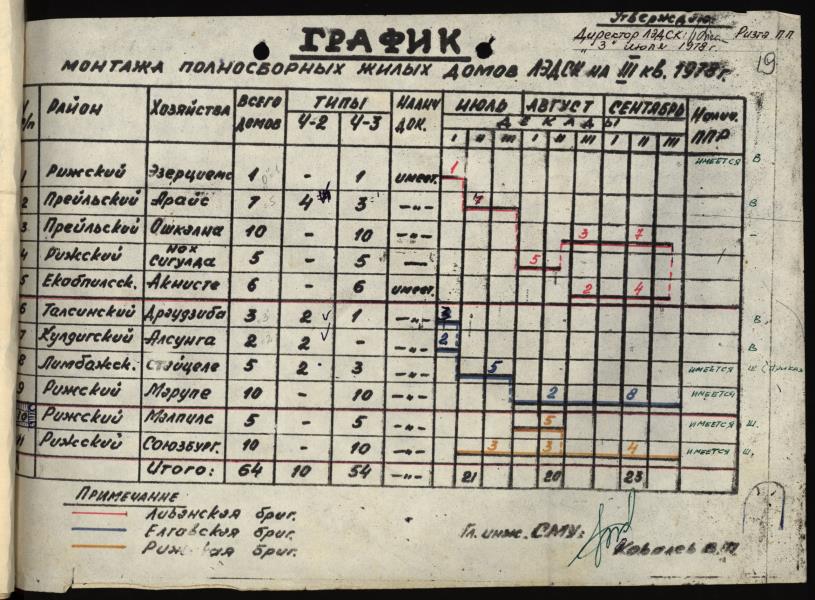 Утверждаю:
Директор ЛЭДСК
"3" июля 1978 г.
19
ГРАФИК
монтажа полносборных жилых домов ЛЭДСК на III кв. 1978г.
п/п Район Хозяйства Всего домов Типы Ч-2 Ч-3 Налич док. Июль Август Сентябрь Налич. ППР
Декады
I II III I II III I II III
1 Рижский Эзерциемс 1 - 1 имеет. 1 имеется В
2 Прейльский Арайс 7 4 3 -"- 7 В
3 Прейльский Ошкална 10 - 10 -"- 3 7 -
4 Рижский нах Сигулда 5 - 5 — 5
5 Екабпилсск. Акнисте 6 - 6 имеет. 2 4
6 Талсинский Драудзиба 3 2 1 -"- 3 В
7 Кулдигский Алсунга 2 2 - -"- 2 В
8 Лимбажск. Стайцеле 5 2 3 -"- 5 имеется
9 Рижский Марупе 10 - 10 -"- 2 8 имеется
10 Рижский Малпилс 5 - 5 -"- 5 имеется Ш.
11 Рижский Союзбург. 10 - 10 -"- 3 3 4 имеется Ш.
Итого: 64 10 54 -"- 21 20 23
Примечание
Ливанская бриг.
Елгавская бриг.
Рижская бриг.
Гл. инж. СМУ:
Ковалев В.